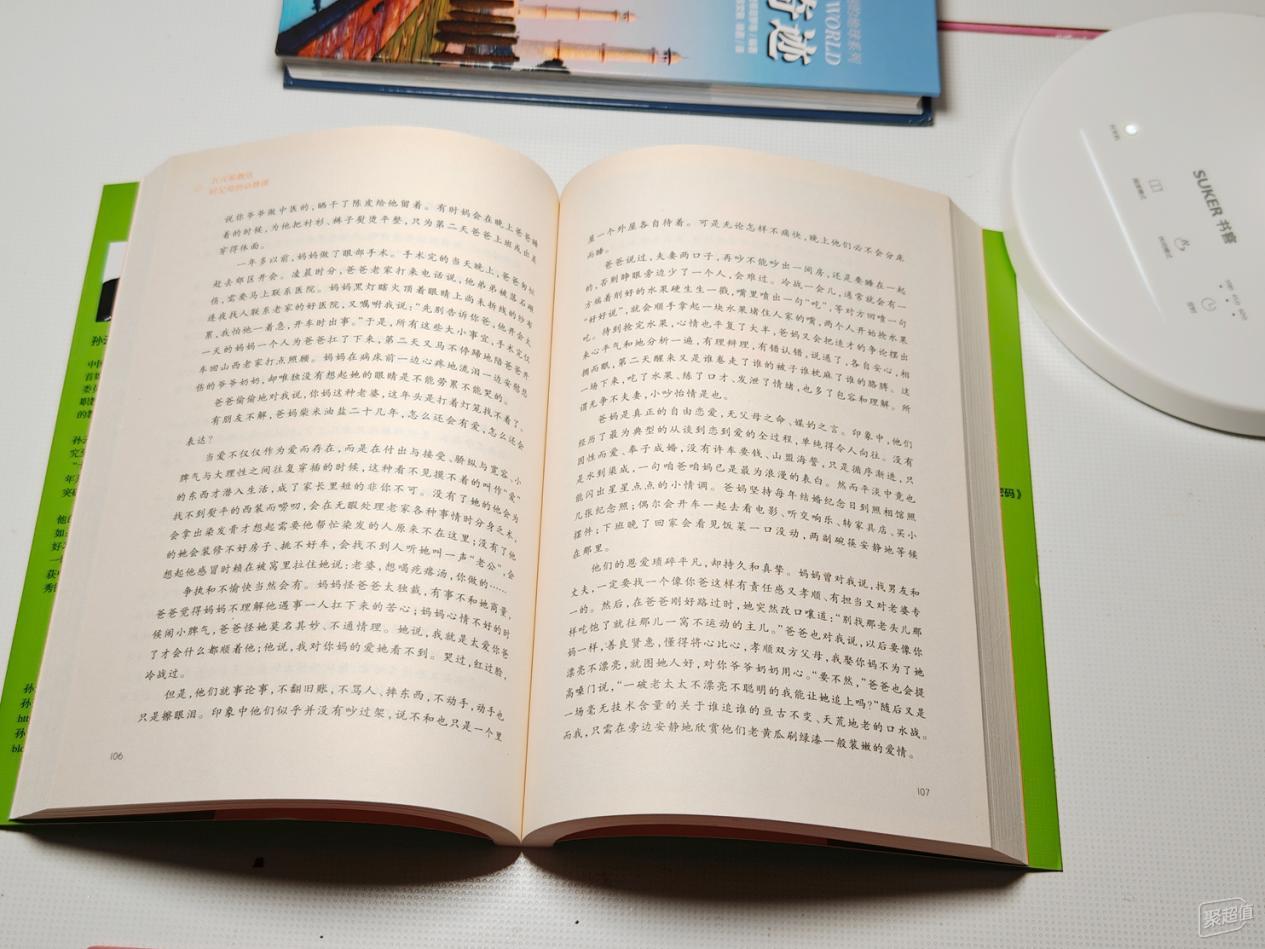 奇迹
WORLD
SUKER 书客
好父母的必修课
说你爷爷做中医的,晒干了陈皮给他留着。有时妈会在晚上爸爸睡
着的时候,为他把衬衫、裤子熨烫平整,只为第二天爸爸上班或出差
穿得体面。
一年多以前,妈妈做了眼部手术。手术完的当天晚上,爸爸匆匆
赶去郊区开会。凌晨时分,爸爸老家打来电话说,他弟弟被落石砸
伤,需要马上联系医院。妈妈黑灯瞎火顶着眼睛上尚未拆线的纱布
连夜找人联系老家的好医院,又嘱咐我说:“先别告诉你爸,他开会太
累,我怕他一着急,开车时出事。”于是,所有这些大小事宜,手术完仅
一天的妈妈一个人为爸爸扛了下来,第二天又马不停蹄地陪爸爸开
车回山西老家打点照顾。妈妈在病床前一边心疼地流泪一边安慰悲
伤的爷爷奶奶,却唯独没有想起她的眼睛是不能劳累不能哭的。
爸爸偷偷地对我说,你妈这种老婆,这年头是打着灯笼找不着了。
有朋友不解,爸妈柴米油盐二十几年,怎么还会有爱,怎么还会
表达?
当爱不仅仅作为爱而存在,而是在付出与接受、骄纵与宽容、小
脾气与大理性之间往复穿插的时候,这种看不见摸不着的叫作“爱”
的东西才潜入生活,成了家长里短的非你不可。没有了她的他会为
找不到熨平的西装而唠叨,会在无暇处理老家各种事情时分身乏术,
会拿出染发膏才想起需要她帮忙染发的人原来不在这里;没有了他
的她会装修不好房子、挑不好车,会找不到人听她叫一声“老公”,会
想起他感冒时赖在被窝里拉住她说:老婆,想喝疙瘩汤,你做的……
争执和不愉快当然会有。妈妈怪爸爸太独裁,有事不和她商量,
爸爸觉得妈妈不理解他遇事一人扛下来的苦心;妈妈心情不好的时
候闹小脾气,爸爸怪她莫名其妙、不通情理。她说,我就是太爱你爸
了才会什么都顺着他;他说,我对你妈的爱她看不到。哭过,红过脸,
冷战过。
但是,他们就事论事,不翻旧账,不骂人、摔东西,不动手,动手也
只是擦眼泪。印象中他们似乎并没有吵过架,说不和也只是一个里
106
屋一个外屋各自待着。可是无论怎样不痛快,晚上他们必不会分床
而睡。
爸爸说过,夫妻两口子,再吵不能吵出一间房,还是要睡在一起
的,否则睁眼旁边少了一个人,会难过。冷战一会儿,通常就会有一
方端着削好的水果硬生生一戳,嘴里喷出一句“吃”,等对方回嗔一句
“好好说”,就会顺手拿起一块水果堵住人家的嘴,两个人开始抢水果
吃。待到抢完水果,心情也平复了大半,爸妈又会把适才的争论摆出
来心平气和地分析一遍,有理辩理,有错认错,说通了,各自安心,相
拥而眠,第二天醒来又是谁卷走了谁的被子谁枕麻了谁的胳膊。这
一场下来,吃了水果、练了口才、发泄了情绪,也多了包容和理解。所
谓无争不夫妻,小吵怡情是也。
爸妈是真正的自由恋爱,无父母之命、媒妁之言。印象中,他们
经历了最为典型的从谈到恋到爱的全过程,单纯得令人向往。没有
因性而爱、奉子成婚,没有许车要钱、山盟海誓,只是循序渐进,只
是水到渠成,一句咱爸咱妈已是最为浪漫的表白。然而平淡中竟也
能闪出星星点点的小情调。爸妈坚持每年结婚纪念日到照相馆照
几张纪念照;偶尔会开车一起去看电影、听交响乐、转家具店、买小
摆件;下班晚了回家会看见饭菜一口没动,两副碗筷安静地等候
在那里。
他们的恩爱琐碎平凡,却持久和真挚。妈妈曾对我说,找男友和
丈夫,一定要找一个像你爸这样有责任感又孝顺、有担当又对老婆专
一的。然后,在爸爸刚好路过时,她突然改口嚷道:“别找那老头儿那
样吃饱了就往那儿一窝不运动的主儿。”爸爸也对我说,以后要像你
妈一样,善良贤惠,懂得将心比心,孝顺双方父母,我娶你妈不为了她
漂亮不漂亮,就图她人好,对你爷爷奶奶用心。“要不然,”爸爸也会提
高嗓门说,“一破老太太不漂亮不聪明的我能让她追上吗?”随后又是
一场毫无技术含量的关于谁追谁的亘古不变、天荒地老的口水战。
而我,只需在旁边安静地欣赏他们老黄瓜刷绿漆一般装嫩的爱情。
107
密码》
聚超值